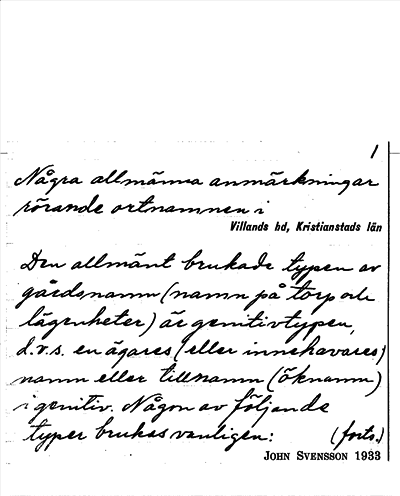 1
Några allmänna anmärkningar
rörande ortnamnen i
Villands hd, Kristianstads län
Den allmänt brukade typen av
gårdsnamn (namn på torp och
lägenheter) är genitivtypen,
d.v.s. en ägares (eller innehavares)
namn eller tillnamn (öknamn)
i genitiv. Någon av följande
typer brukas vanligen: (forts.)
JOHN SVENSSON 1933